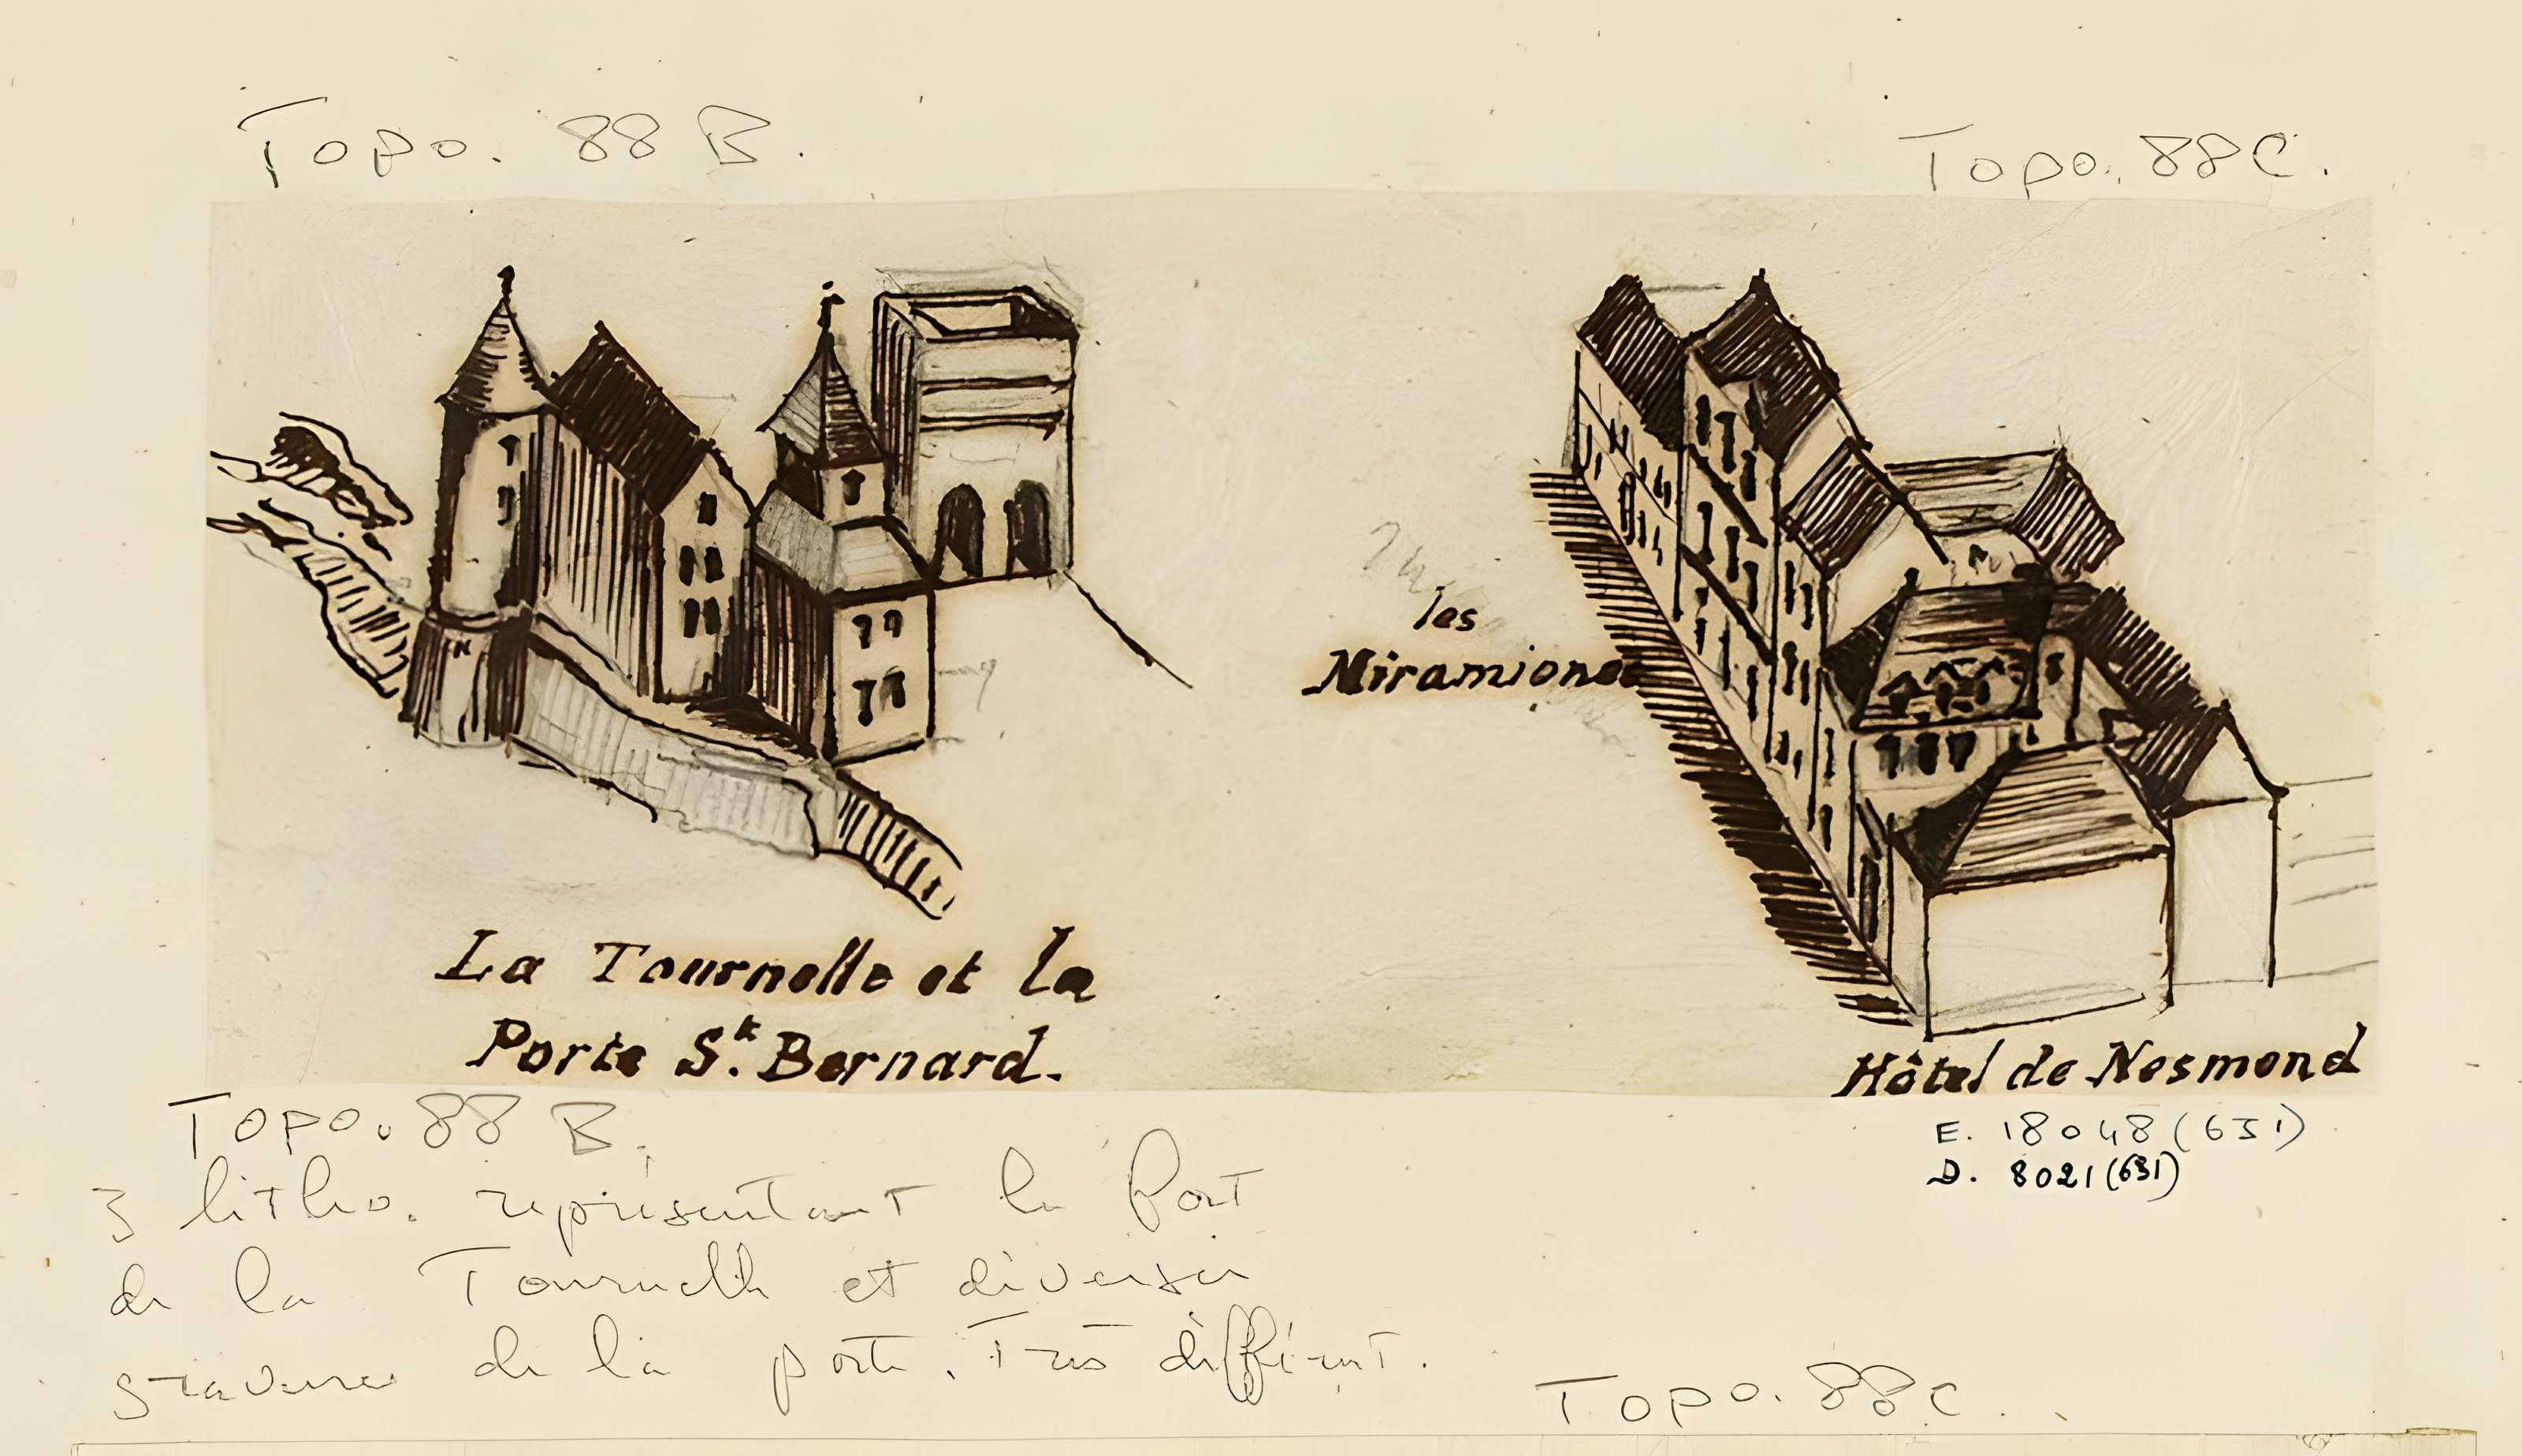 Topo. 88 B.
Topo. 88 C.
les
Miramiones
La Tournelle et la
Porte St. Bernard.
Hôtel de Nesmond
E. 18048 (631)
D. 8021 (631)
Topo. 88 B.
3 litho. représentant le Port
de la Tournelle et diverses
gravures de la porte. Très différent.
Topo. 88 C.